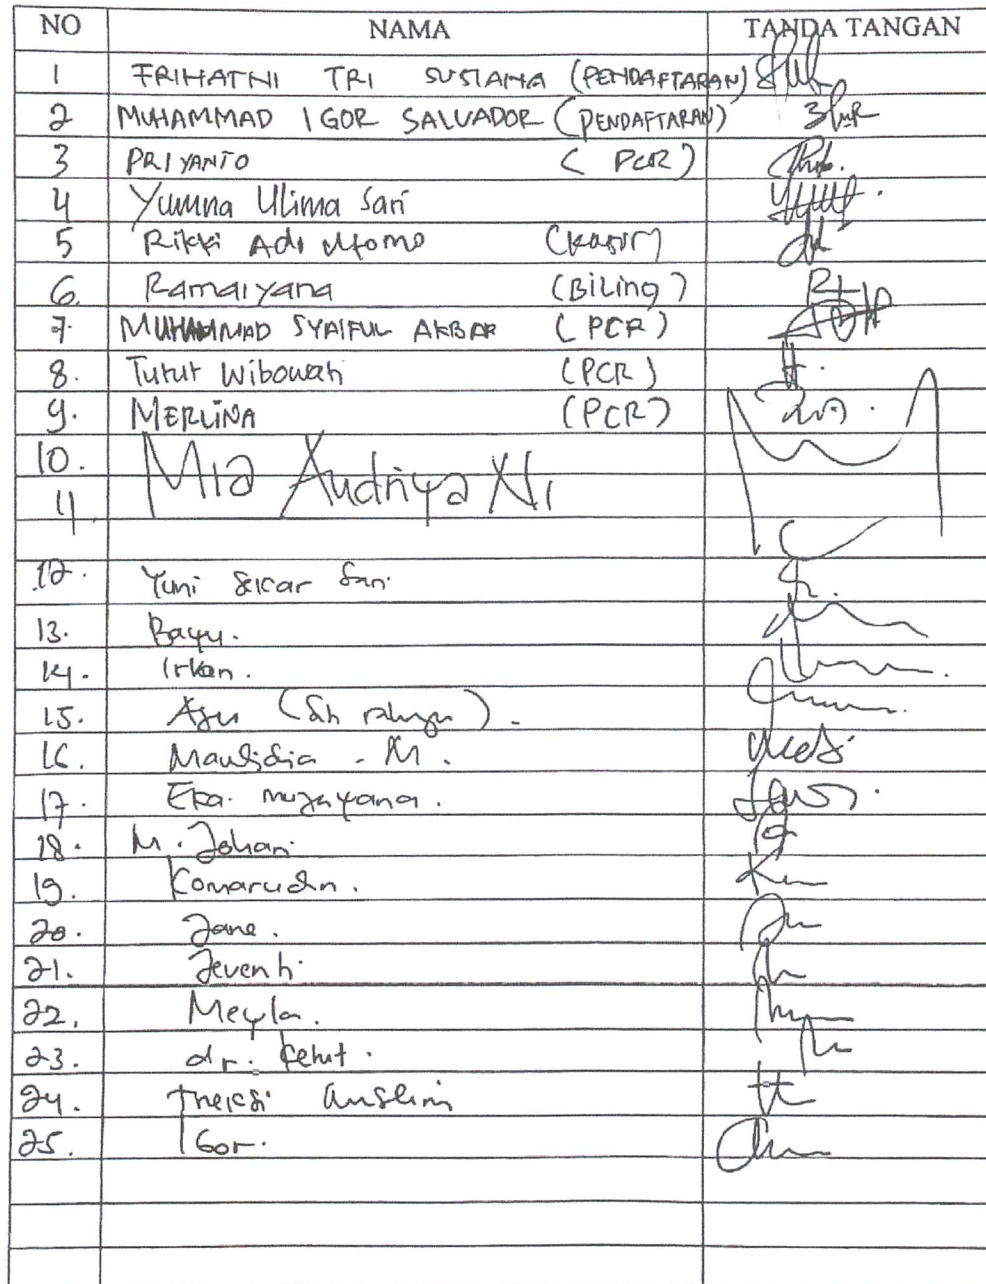 NO NAMA TANDA TANGAN
1 FRIHATNI TRI SUSIANA (PENDAFTARAN)
2 MUHAMMAD IGOR SALVADOR (PENDAFTARAN)
3 PRIYANTO (PCR)
4 Yumna Ulima Sari
5 Rikki Adi Utomo (Kasir)
6. Ramaiyana (Biling)
7. MUHAMMAD SYAIFUL AKBAR (PCR)
8. Tutut Wibowati (PCR)
9. MERLINA (PCR)
10. Mia Audriya Ni
11
12. Yuni Sekar Sari
13. Bayu.
14. Irkan.
15. Ayu
16. Maulidia . M.
17. Eka
18. M. Johan
19. Komarudin.
20. Jane.
21. Jeventi
22. Meyla.
23. dr. Ketut.
24.
25. Igor.